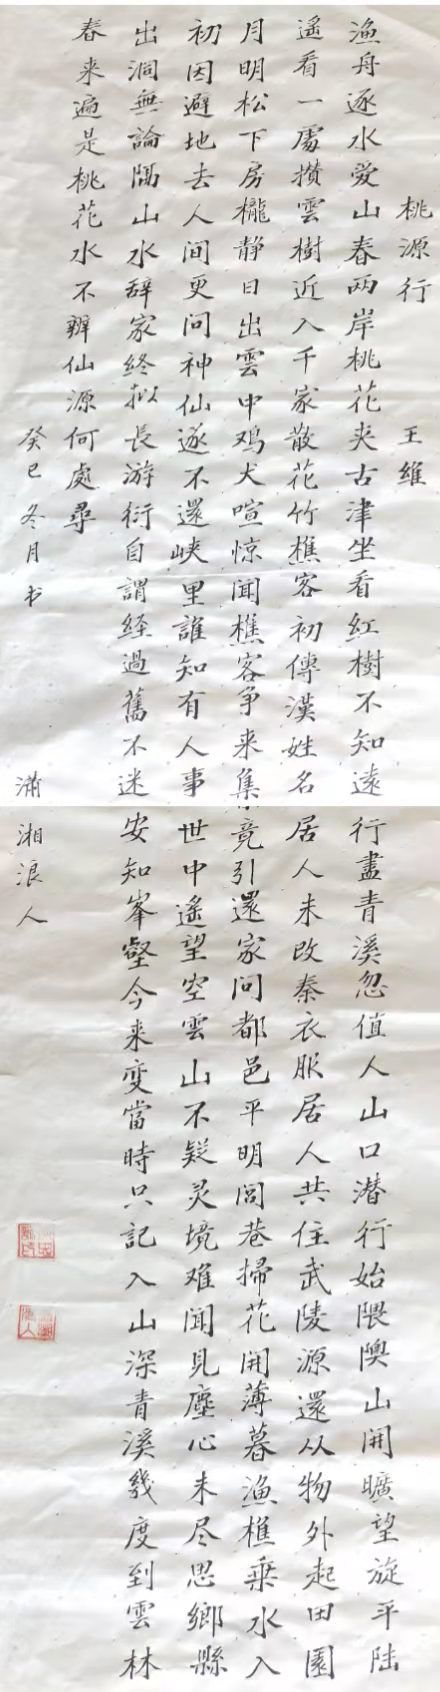 桃源行 王維
漁舟逐水愛山春两岸桃花夹古津坐看紅樹不知遠行盡青溪忽值人山口潜行始隈隩山開曠望旋平陆
遥看一處攒雲樹近入千家散花竹樵客初傳漢姓名居人未改秦衣服居人共住武陵源還从物外起田園
月明松下房櫳静日出雲中鸡犬喧惊聞樵客争来集竟引還家问都邑平明闾巷掃花開薄暮漁樵乗水入
初因避地去人间更问神仙遂不還峡里誰知有人事世中遥望空雲山不疑灵境难聞見塵心未尽思鄉縣
出洞無論隔山水辞家終拟長游衍自謂経過舊不迷安知峯壑今来变當時只記入山深青溪幾度到雲林
春来遍是桃花水不辨仙源何處尋
癸巳冬月书 瀟湘浪人